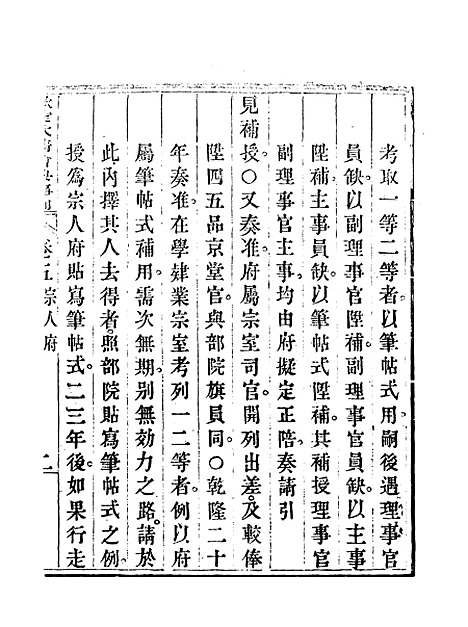 考取一等二等者以筆帖式用嗣後遇理事官
員缺以副理事官陞補副理事官員缺以主事
陞補主事員缺以筆帖式陞補其補授理事官
副理事官主事均由府擬定正陪奏請引
見補授〇又奏准府屬宗室司官開列出差及較俸
陞四五品京堂官與部院旗員同〇乾隆二十
年奏准在學肄業宗室考列一二等者例以府
屬筆帖式補用需次無期別無効力之路請於
此內擇其人去得者照部院貼寫筆帖式之例
授爲宗人府貼寫筆帖式二三年後如果行走
卷五宗人府 二